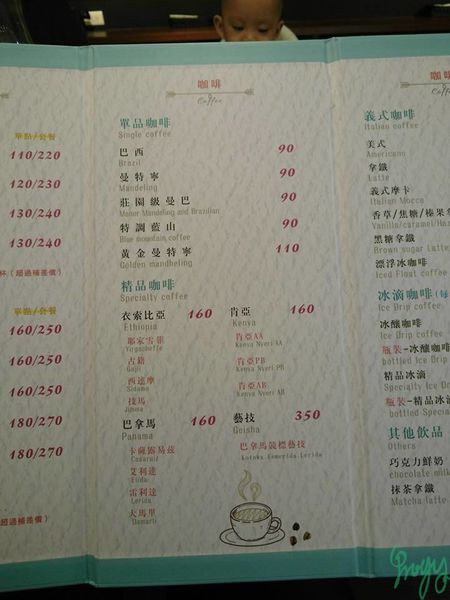 單點/套餐
110/220
120/230
130/240
130/240
單點/套餐
160/250
160/250
160/250
180/270
180/270
咖啡
Coffee
單品咖啡
Single coffee
巴西 90
Brazil
曼特寧 90
Mandeling
莊園級曼巴 90
Manor Mandeling and Brazilian
特調藍山 90
Blue mountain coffee
黃金曼特寧 110
Golden mandheling
精品咖啡
Specialty coffee
衣索比亞 160
Ethiopia
耶家雪菲
Yirgacheffe
古籍
Guji
西達摩
Sidamo
技馬
Jimma
巴拿馬 160
Panama
卡薩路易茲
艾利達
Elida
雷利達
Lerida
大馬里
Damarli
肯亞 160
Kenya
肯亞AA
Kenya Nyeri AA
肯亞PB
Kenya Nyeri PB
肯亞AB
Kenya Nyeri AB
藝技 350
Geisha
巴拿馬競標藝技
Kotowa Esmerida Lerida
咖啡
義式咖啡
Italian coffee
美式
Americano
拿鐵
Latte
義式摩卡
Italian Mocca
香草/焦糖/榛果
Vanilla/caramel/Ha
黑糖拿鐵
Brown sugar Latte
漂浮冰咖啡
Iced Float coffee
冰滴咖啡(每
Ice Drip coffee
冰釀咖啡
Ice Drip coffee
瓶装-冰釀咖啡
bottled Ice Drip
精品冰滴
Specialty Ice Dr
瓶装-精品冰滴
bottled Specia
其他飲品
Others
巧克力鮮奶
chocolate milk
抹茶拿鐵
Matcha latte